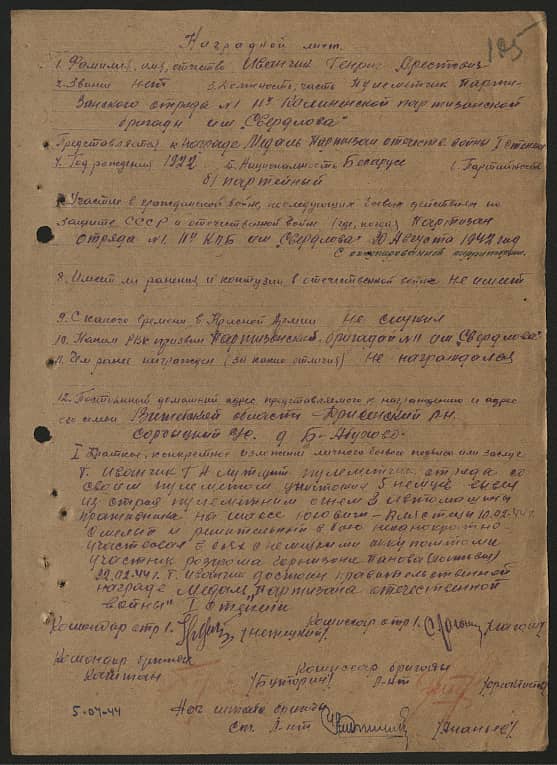 185
Наградной лист.
1. Фамилия, имя, отчество Иванчик Генрих Орестович
2. Звание нет 3. Должность, часть Пулеметчик Парти-
занского отряда №1 11й Калининской партизанской
бригады им „Свердлова"
Представляется к награде Медаль Партизан отечеств войны I степени
4. Год рождения 1922 5. Национальность Беларус 6. Партийность
б/партейный
7. Участие в гражданской войне, последующих боевых действиях по
защите СССР и отечественной войне (где, когда) Партизан
отряда №1 11й КПБ им „Свердлова" 20 Августа 1942 год
8. Имеет ли ранения и контузии в отечественной войне не имеет
9. С какого времени в Красной Армии не служил
10. Каким РВК призван Партизанской бригадой №11 им „Свердлова"
11. Чем ранее награжден (за какие отличия) не награждался
12. Постоянный домашний адрес представляемого к награждению и адрес
его семьи области – Дрисенский р-н.
с/с. д Б-
I Краткое, конкретное изложение личного боевого подвига или заслуг
Т. Иванчик Г А пулеметчик отряда со
своим пулеметом уничтожил 5 немцев
из строя пулеметным огнем 3 автомашины
противника на шосе – 10.02.44г.
Смелый и решительный в бою неоднократно
участвовал в боях с немецкими оккупантами
участник розгрома гарнизона
22.02.44г. Т. Иванчик достоин правительственной
награде Медаль „Партизана отечественной
войны" I степени
Командир отр 1. Комиссар отр 1.
Командир бригады Комиссар бригады
Капитан Л-нт
5-04-44 Нач штаба бригады
Ст. Л-нт